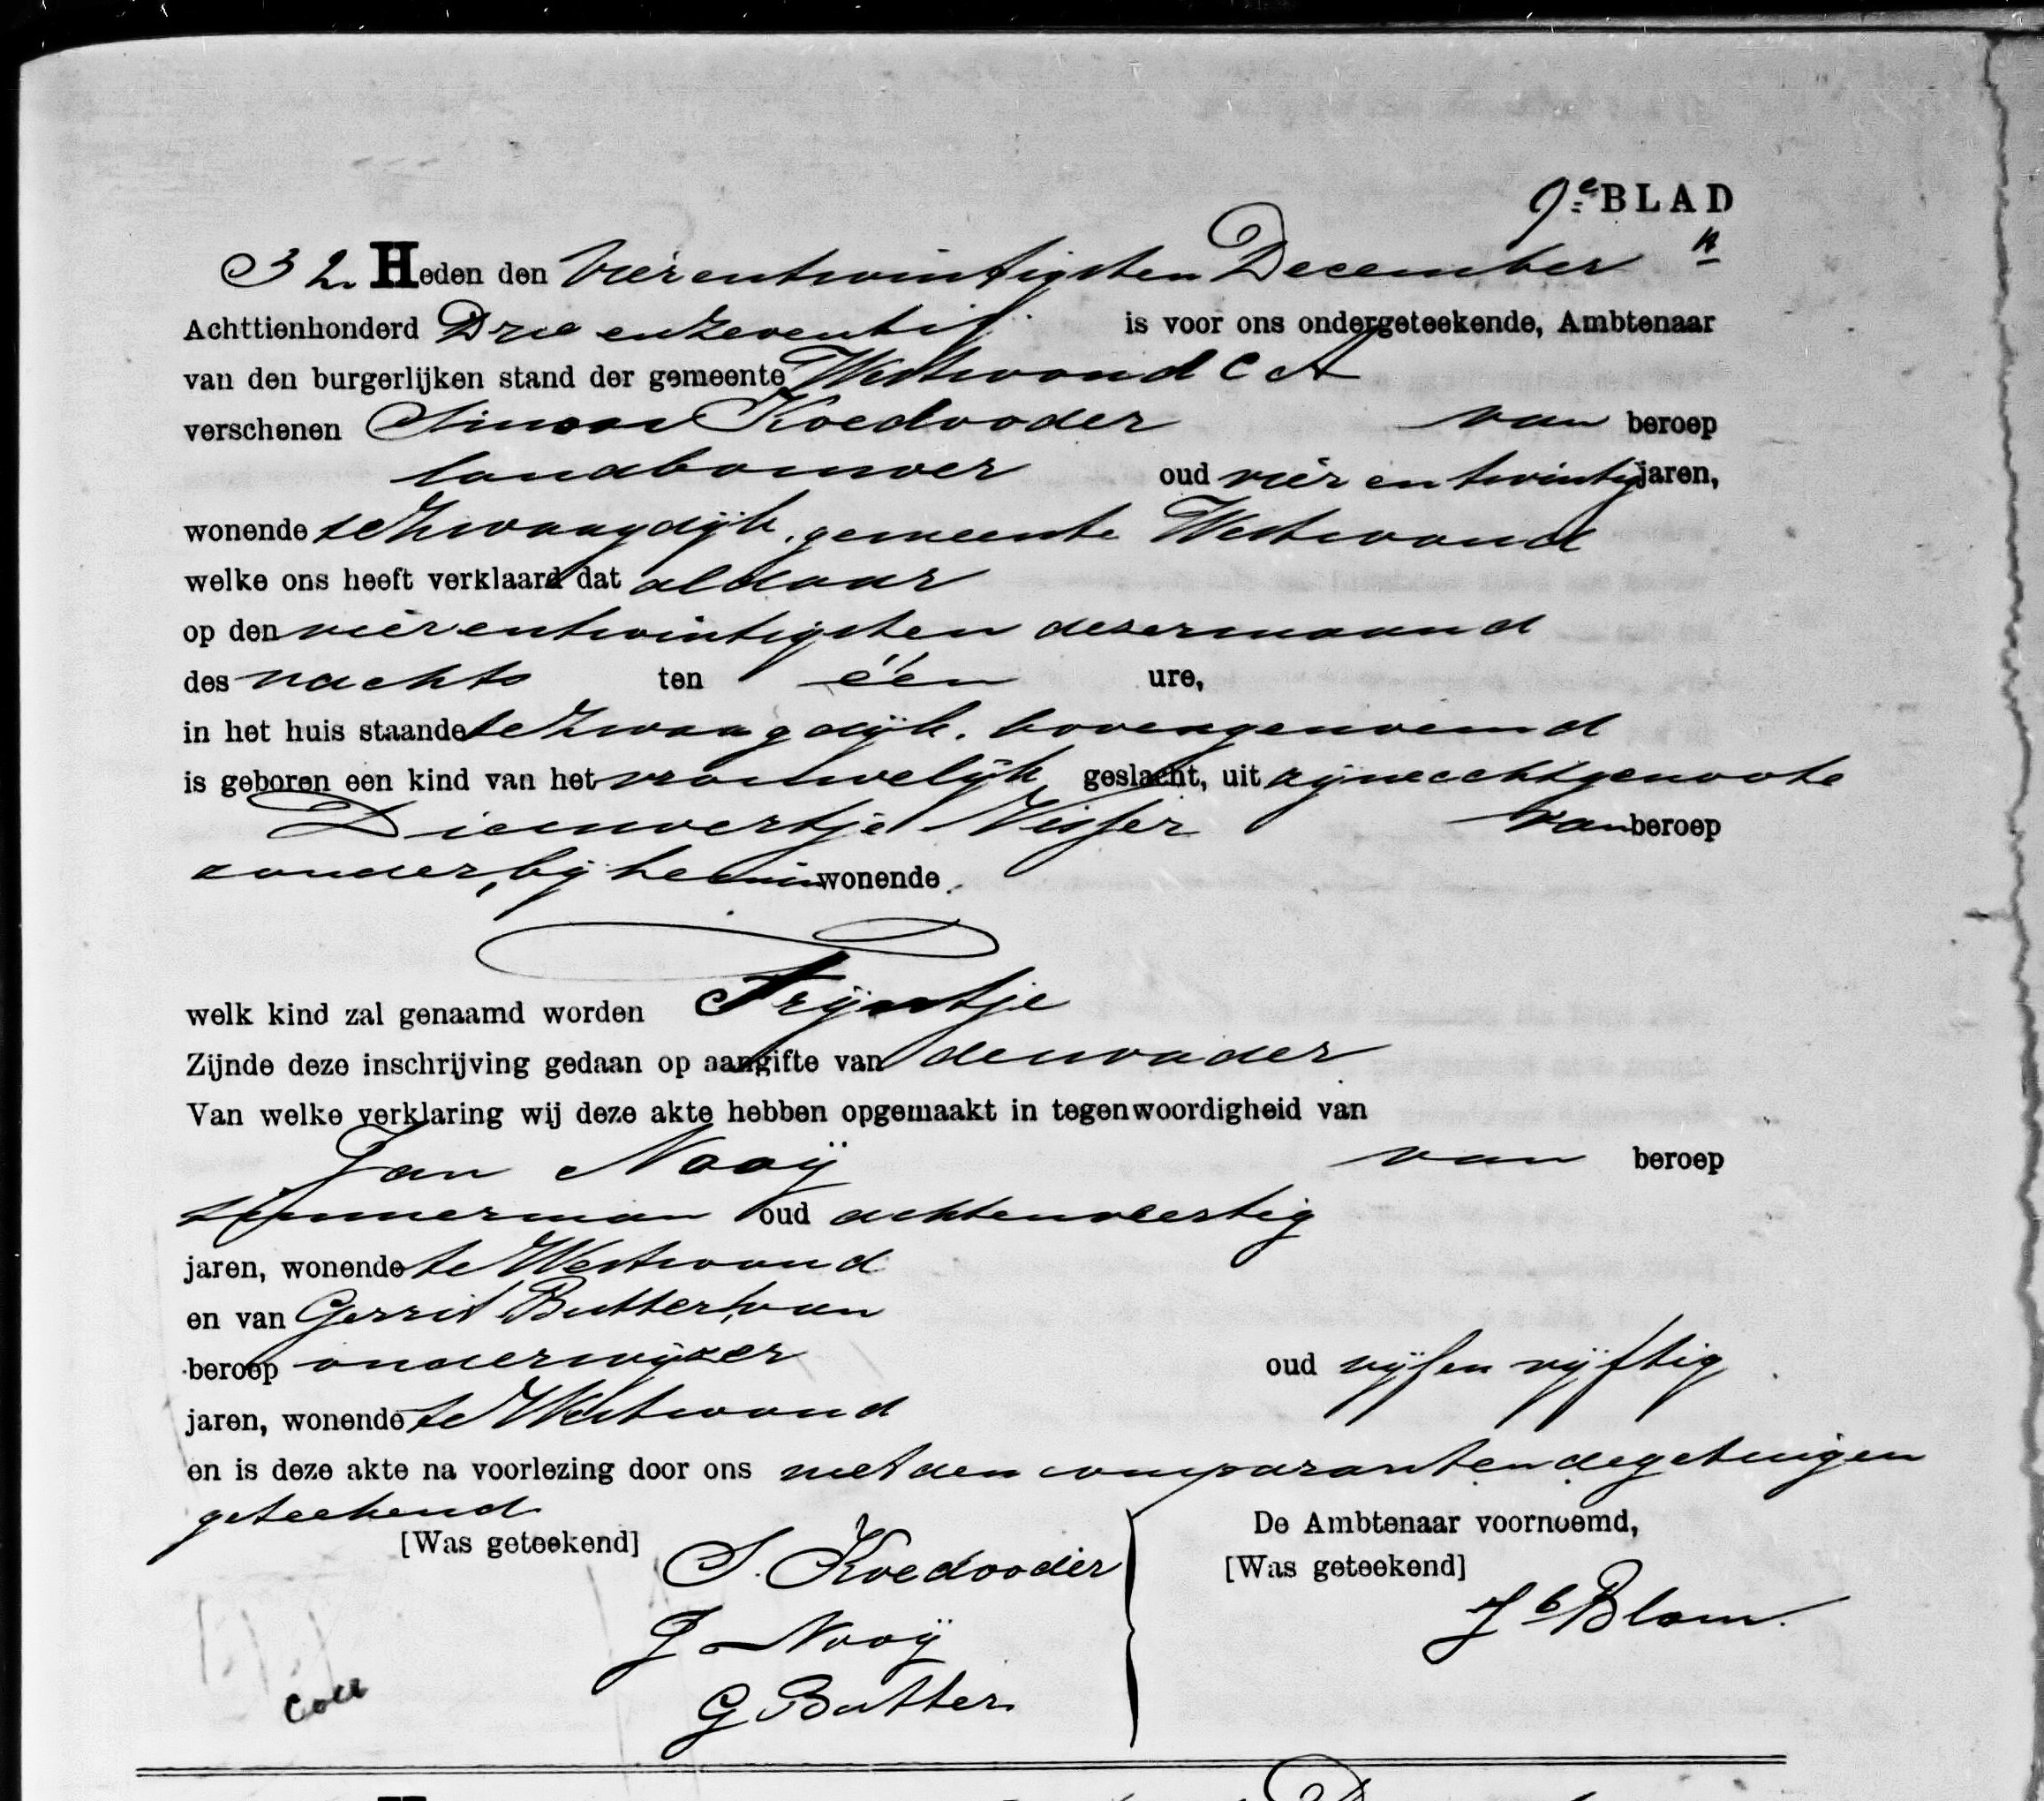 9e BLAD
32 Heden den Vierentwintigsten December
Achttienhonderd Drie en zeventig is voor ons ondergeteekende, Ambtenaar
van den burgerlijken stand der gemeente Westwoud C A
verschenen Simon Koedooder van beroep
landbouwer oud vier en twintig jaren,
wonende te Zwaagdijk, gemeente Westwoud
welke ons heeft verklaard dat aldaar
op den vierentwintigsten dezer maand
des nachts ten één ure,
in het huis staande te Zwaagdijk, bovengenoemd
is geboren een kind van het vrouwelijk geslacht, uit zijne echtgenoote
Dieuwertje Visser van beroep
zonder, bij hem inwonende.
welk kind zal genaamd worden Trijntje
Zijnde deze inschrijving gedaan op aangifte van den vader
Van welke verklaring wij deze akte hebben opgemaakt in tegenwoordigheid van
Jan Nooij van beroep
timmerman oud achtenveertig
jaren, wonende te Westwoud
en van Gerrit Butter, van
beroep onderwijzer oud vijf en vijftig
jaren, wonende te Westwoud
en is deze akte na voorlezing door ons met den comparant en de getuigen
geteekend
[Was geteekend] S. Koedooder
J Nooij
G Butter
De Ambtenaar voornoemd,
[Was geteekend]
Jb Blom.
Coll